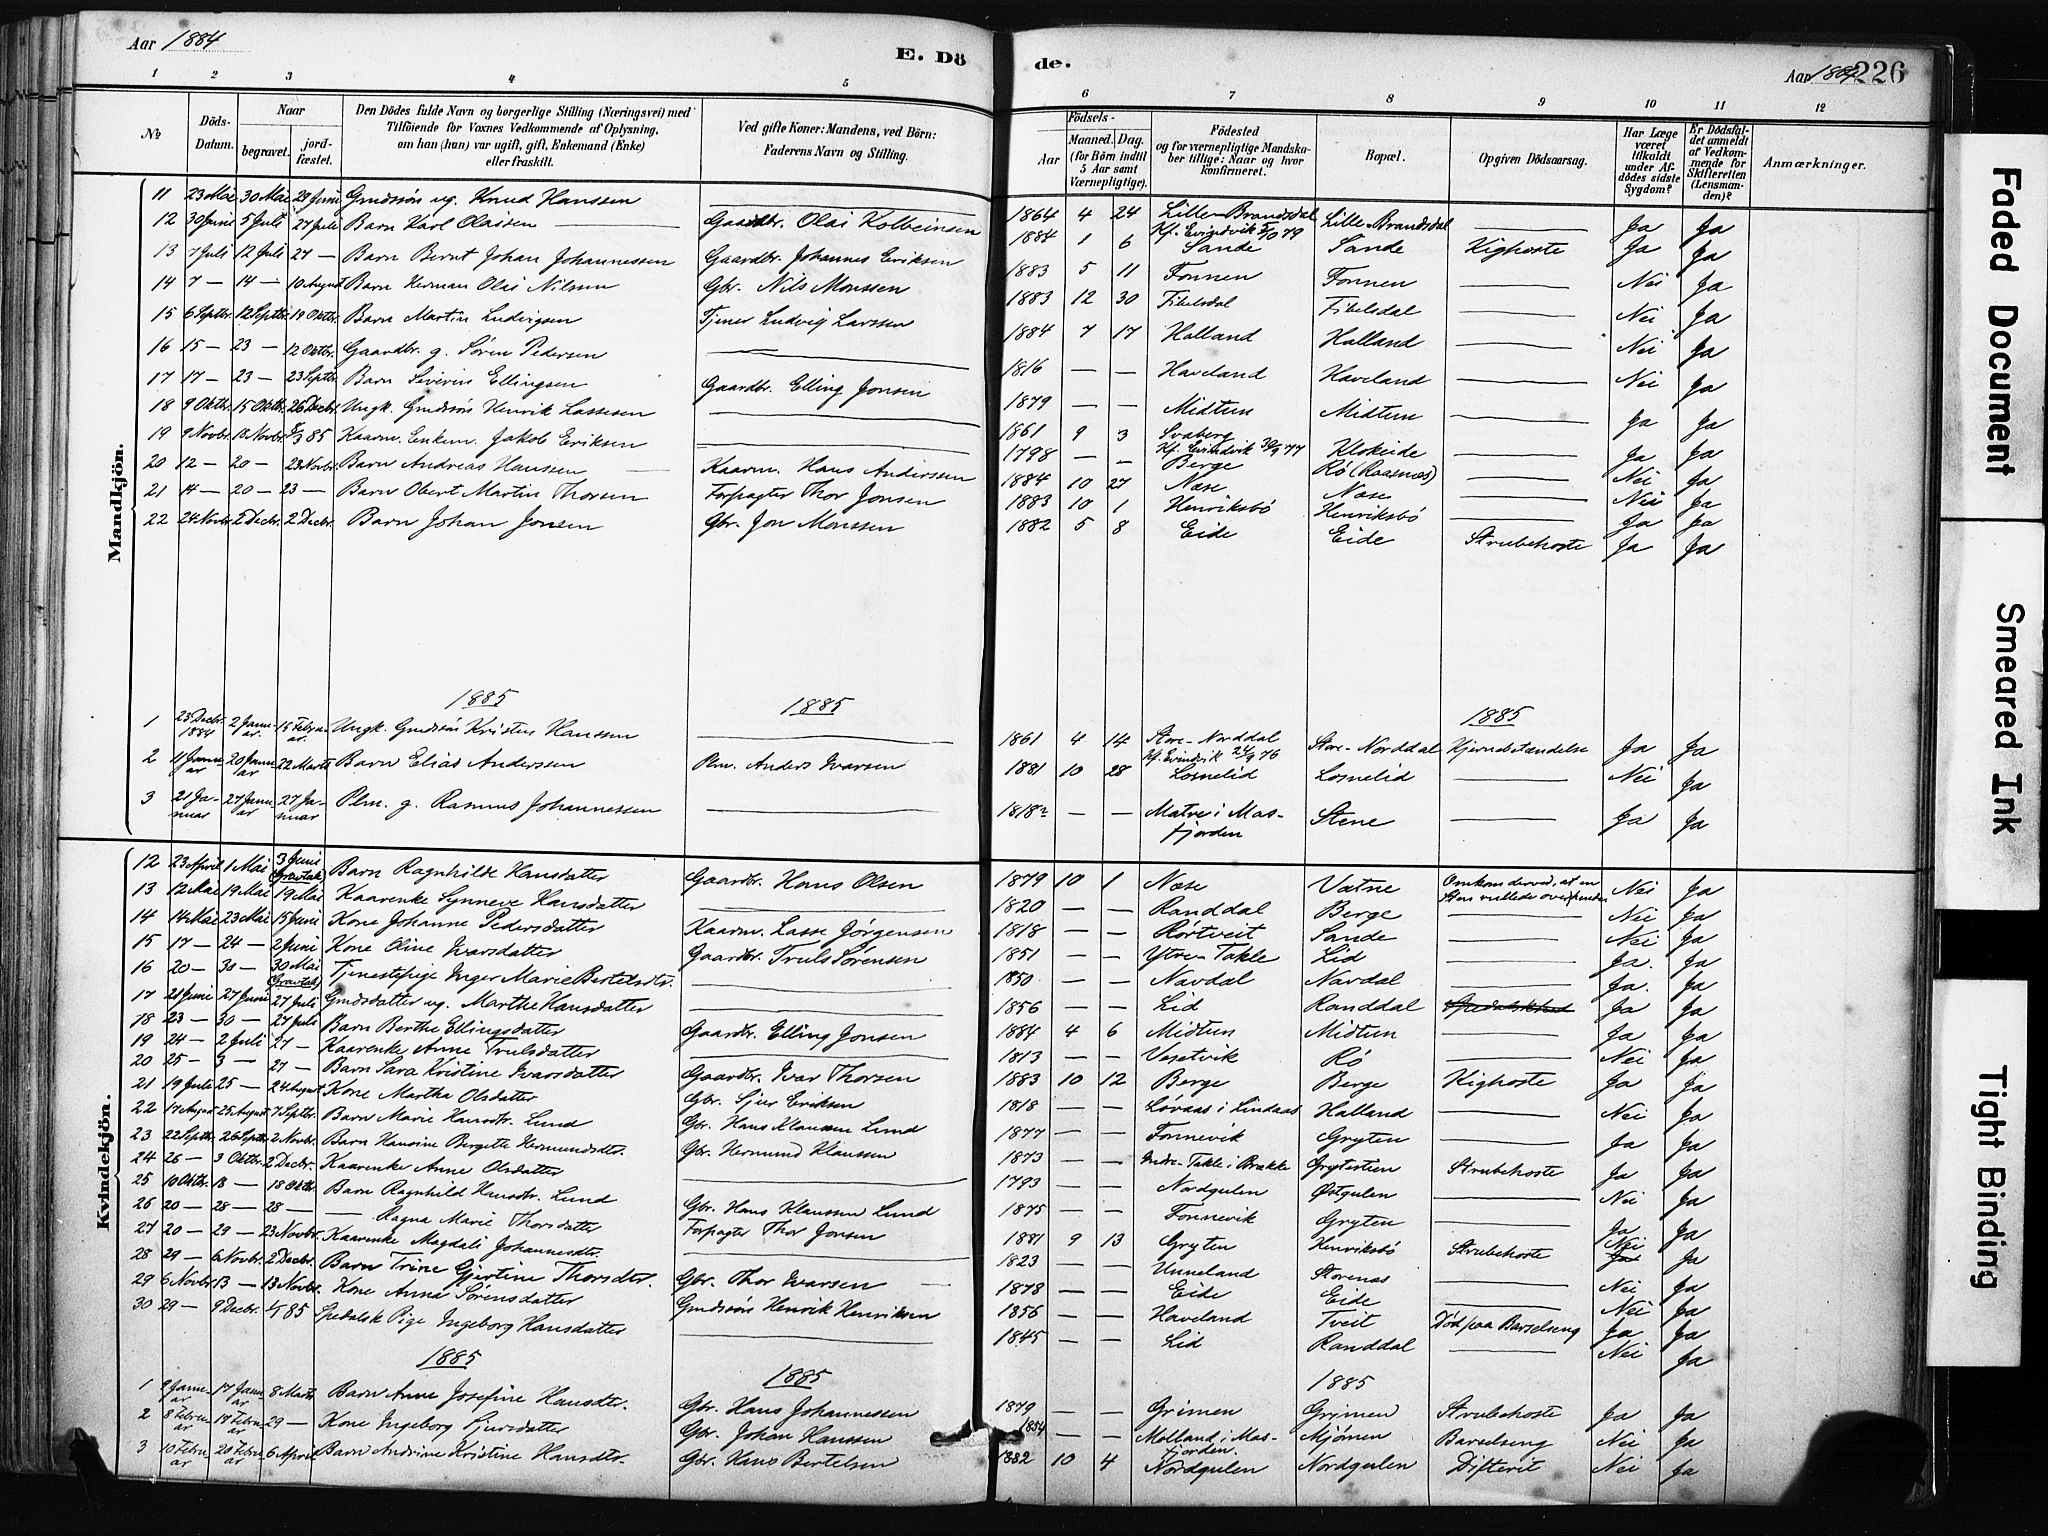 Aar 1884
E. Dö
de.
Aar 1884
226
1 2 3 4 5 6 7 8 9 10 11 12
№
Döds-Datum.
Naar
begravet.
jord-fæstet.
Den Dödes fulde Navn og borgerlige Stilling (Næringsvei) med
Tilföiende for Voxnes Vedkommende af Oplysning,
om han (hun) var ugift, gift, Enkemand (Enke)
eller fraskilt.
Ved gifte Koner: Mandens, ved Börn:
Faderens Navn og Stilling.
Födsels-
Aar
Maaned. Dag.
(for Börn indtil
5 Aar samt
Værnepligtige).
Födested
og for værnepligtige Mandska-
ber tillige: Naar og hvor
konfirmeret.
Bopæl.
Opgiven Dödsaarsag.
Har Læge
været
tilkaldt
under Af-
dödes sidste
Sygdom?
Er Dödsfal-
det anmeldt
af Vedkom-
mende for
Skifteretten
(Lensman-
den)?
Anmærkninger.
Mandkjön.
11 23 Mai 30 Mai 29 Juni Gmdssøn ug. Knud Hanssen — 1864 4 24 Lille-Brandsdal Kf. Evindvik 5/10 79 Lille-Brandsdal — Ja Ja
12 30 Juni 5 Juli 27 Juli Barn Karl Olaisen — Gaardbr. Olai Kolbeinsen 1884 1 6 Sande Sande Kighoste Ja Ja
13 7 Juli 12 Juli 27 — Barn Bernt Johan Johannessen Gaardbr. Johannes Eriksen 1883 5 11 Fonnen Fonnen — Nei Ja
14 7 — 14 — 10 August Barn Herman Olai Nilsen Gbr. Nils Monssen 1883 12 30 Fibelsdal Fibelsdal — Nei Ja
15 6 Septbr. 12 Septbr. 19 Oktbr. Barn Martin Ludvigsen Tjener Ludvig Larssen 1884 7 17 Halland Halland — Nei Ja
16 15 — 23 — 12 Oktbr. Gaardbr. g. Søren Pedersen — 1816 — — Haveland Haveland — Nei Ja
17 17 — 23 — 23 Septbr. Barn Siverin Ellingsen Gaardbr. Elling Jonsen 1879 — — Midtun Midtun — Ja Ja
18 9 Oktbr. 15 Oktbr. 26 Decbr. Ungk. Gmdssøn Henrik Lassesen — 1861 9 3 Svaberg Kf. Evindvik 30/9 77 Klokeide — Ja Ja
19 9 Novbr. 18 Novbr. 8/3 85 Kaarm. Enkem. Jakob Eriksen — 1798 — — Berge Rö (Raasnæs) — Nei Ja
20 12 — 20 — 23 Novbr. Barn Andreas Hanssen — Kaarm. Hans Anderssen 1884 10 27 Næse Næse — Nei Ja
21 14 — 20 — 23 — Barn Obert Martin Thorsen Forpagter Thor Jonsen 1883 10 1 Henriksbö Henriksbö — Ja Ja
22 24 Novbr. 2 Decbr. 2 Decbr. Barn Johan Jonsen Gbr. Jon Monssen 1882 5 8 Eide Eide Strubehoste Ja Ja
1885 1885 1885
1 23 Decbr. 1884 2 Januar. 15 Februar. Ungk. Gmdssøn Kristen Hanssen — 1861 4 14 Store-Norddal Kf. Evindvik 24/9 76 Store-Norddal Hjernebetændelse Ja Ja
2 11 Januar 20 Januar 22 Marts Barn Elias Anderssen Plm. Anders Ivarsen 1881 10 28 Losnelid Losnelid — Nei Ja
3 21 Januar 27 Januar 27 Januar Plm. g. Rasmus Johannessen — 1818? — — Matre i Masfjorden Stene — Ja Ja
Kvindekjön.
12 23 April 1 Mai 3 Juni (Gravtale) Barn Ragnhilde Hansdatter Gaardbr. Hans Olsen 1879 10 1 Næse Vatne Omkom derved, at en Sten rullede over hende. Nei Ja
13 12 Mai 19 Mai 19 Mai Kaarenke Synneve Hansdatter — 1820 — — Randdal Berge — Nei Ja
14 14 Mai 23 Mai 15 Juni Kone Johanne Pedersdatter Kaarm. Lasse Jørgensen 1818 — — Rørtveit Sande — Nei Ja
15 17 — 24 — 2 Juni Kone Oline Ivarsdatter Gaardbr. Truls Sørensen 1851 — — Ytre-Takle Lid — Ja. Ja
16 20 — 30 — 30 Mai (Gravtale) Tjenestepige Inger Marie Bertelsdtr. — 1850 — — Navdal Navdal — Ja. Ja
17 21 Juni 27 Juni 27 Juli Gmdsdatter ug. Marthe Hansdatter — 1856 — — Lid Randdal Spedalskhed Ja Ja
18 23 — 30 — 27 Juli Barn Berthe Ellingsdatter Gaardbr. Elling Jonsen 1884 4 6 Midtun Midtun — Ja Ja
19 24 — 2 Juli 27 — Kaarenke Anne Trulsdatter — 1813 — — Vesetvik Rö — Nei Ja
20 25 — 3 — 27 — Barn Sara Kristine Ivarsdatter Gaardbr. Ivar Thorsen 1883 10 12 Berge Berge Kighoste Ja Ja
21 19 Juli 25 — 24 August Kone Martha Olsdatter Gbr. Sjur Eriksen 1818 — — Løvaas i Lindaas Halland — Nei Ja
22 17 August 25 August 7 Septbr. Barn Marie Hansdtr. Lund Gbr. Hans Klaussen Lund 1877 — — Fonnevik Gryten — Ja Ja
23 22 Septbr. 26 Septbr. 2 Novbr. Barn Hansine Bergitte Hermundsdtr. Gbr. Hermund Klaussen 1873 — — Indre-Takle i Brække Grytestien Strubehoste Ja Ja
24 26 — 3 Oktbr. 2 Decbr. Kaarenke Anne Olsdatter — 1793 — — Nordgulen Østgulen — Nei Ja
25 10 Oktbr. 18 — 18 Oktbr. Barn Ragnhild Hansdtr. Lund Gbr. Hans Klaussen Lund 1875 — — Fonnevik Gryten — Ja Ja
26 20 — 28 — 28 — — Ragna Marie Thorsdatter Forpagter Thor Jonsen 1881 9 13 Gryten Henriksbö Strubehoste Nei Ja
27 20 — 29 — 23 Novbr. Kaarenke Magdali Johannesdtr. — 1823 — — Unneland Storenæs — Nei Ja
28 29 — 6 Novbr. 2 Decbr. Barn Trine Gjertine Thorsdtr. Gbr. Thor Ivarsen — 1878 — — Eide Eide — Nei Ja
29 6 Novbr. 13 — 13 Novbr. Kone Anna Sørensdatter Gmdssøn Henrik Henriksen 1856 — — Haveland Tveit Död paa Barselseng Ja Ja
30 29 — 9 Decbr. 85 Spedalsk Pige Ingeborg Hansdatter — 1845 — — Lid Randdal — Nei Ja
1885 1885 1885
1 9 Januar 17 Januar 8 Marts Barn Anne Josefine Hansdtr. Gbr. Hans Johannessen 1879 — — Grimen Grimen Strubehoste Ja Ja
2 8 Februar 17 Februar 29 — Kone Ingeborg Sjursdatter Gbr. Johan Hanssen 1854 — — Molland i Masfjorden. Mjømen Barselseng Nei Ja
3 10 Februar 20 Februar 6 April Barn Andrine Kristine Hansdtr. Gbr. Hans Bertelsen 1882 10 4 Nordgulen Nordgulen Difterit Nei Ja
Faded Document
Smeared Ink
Tight Binding